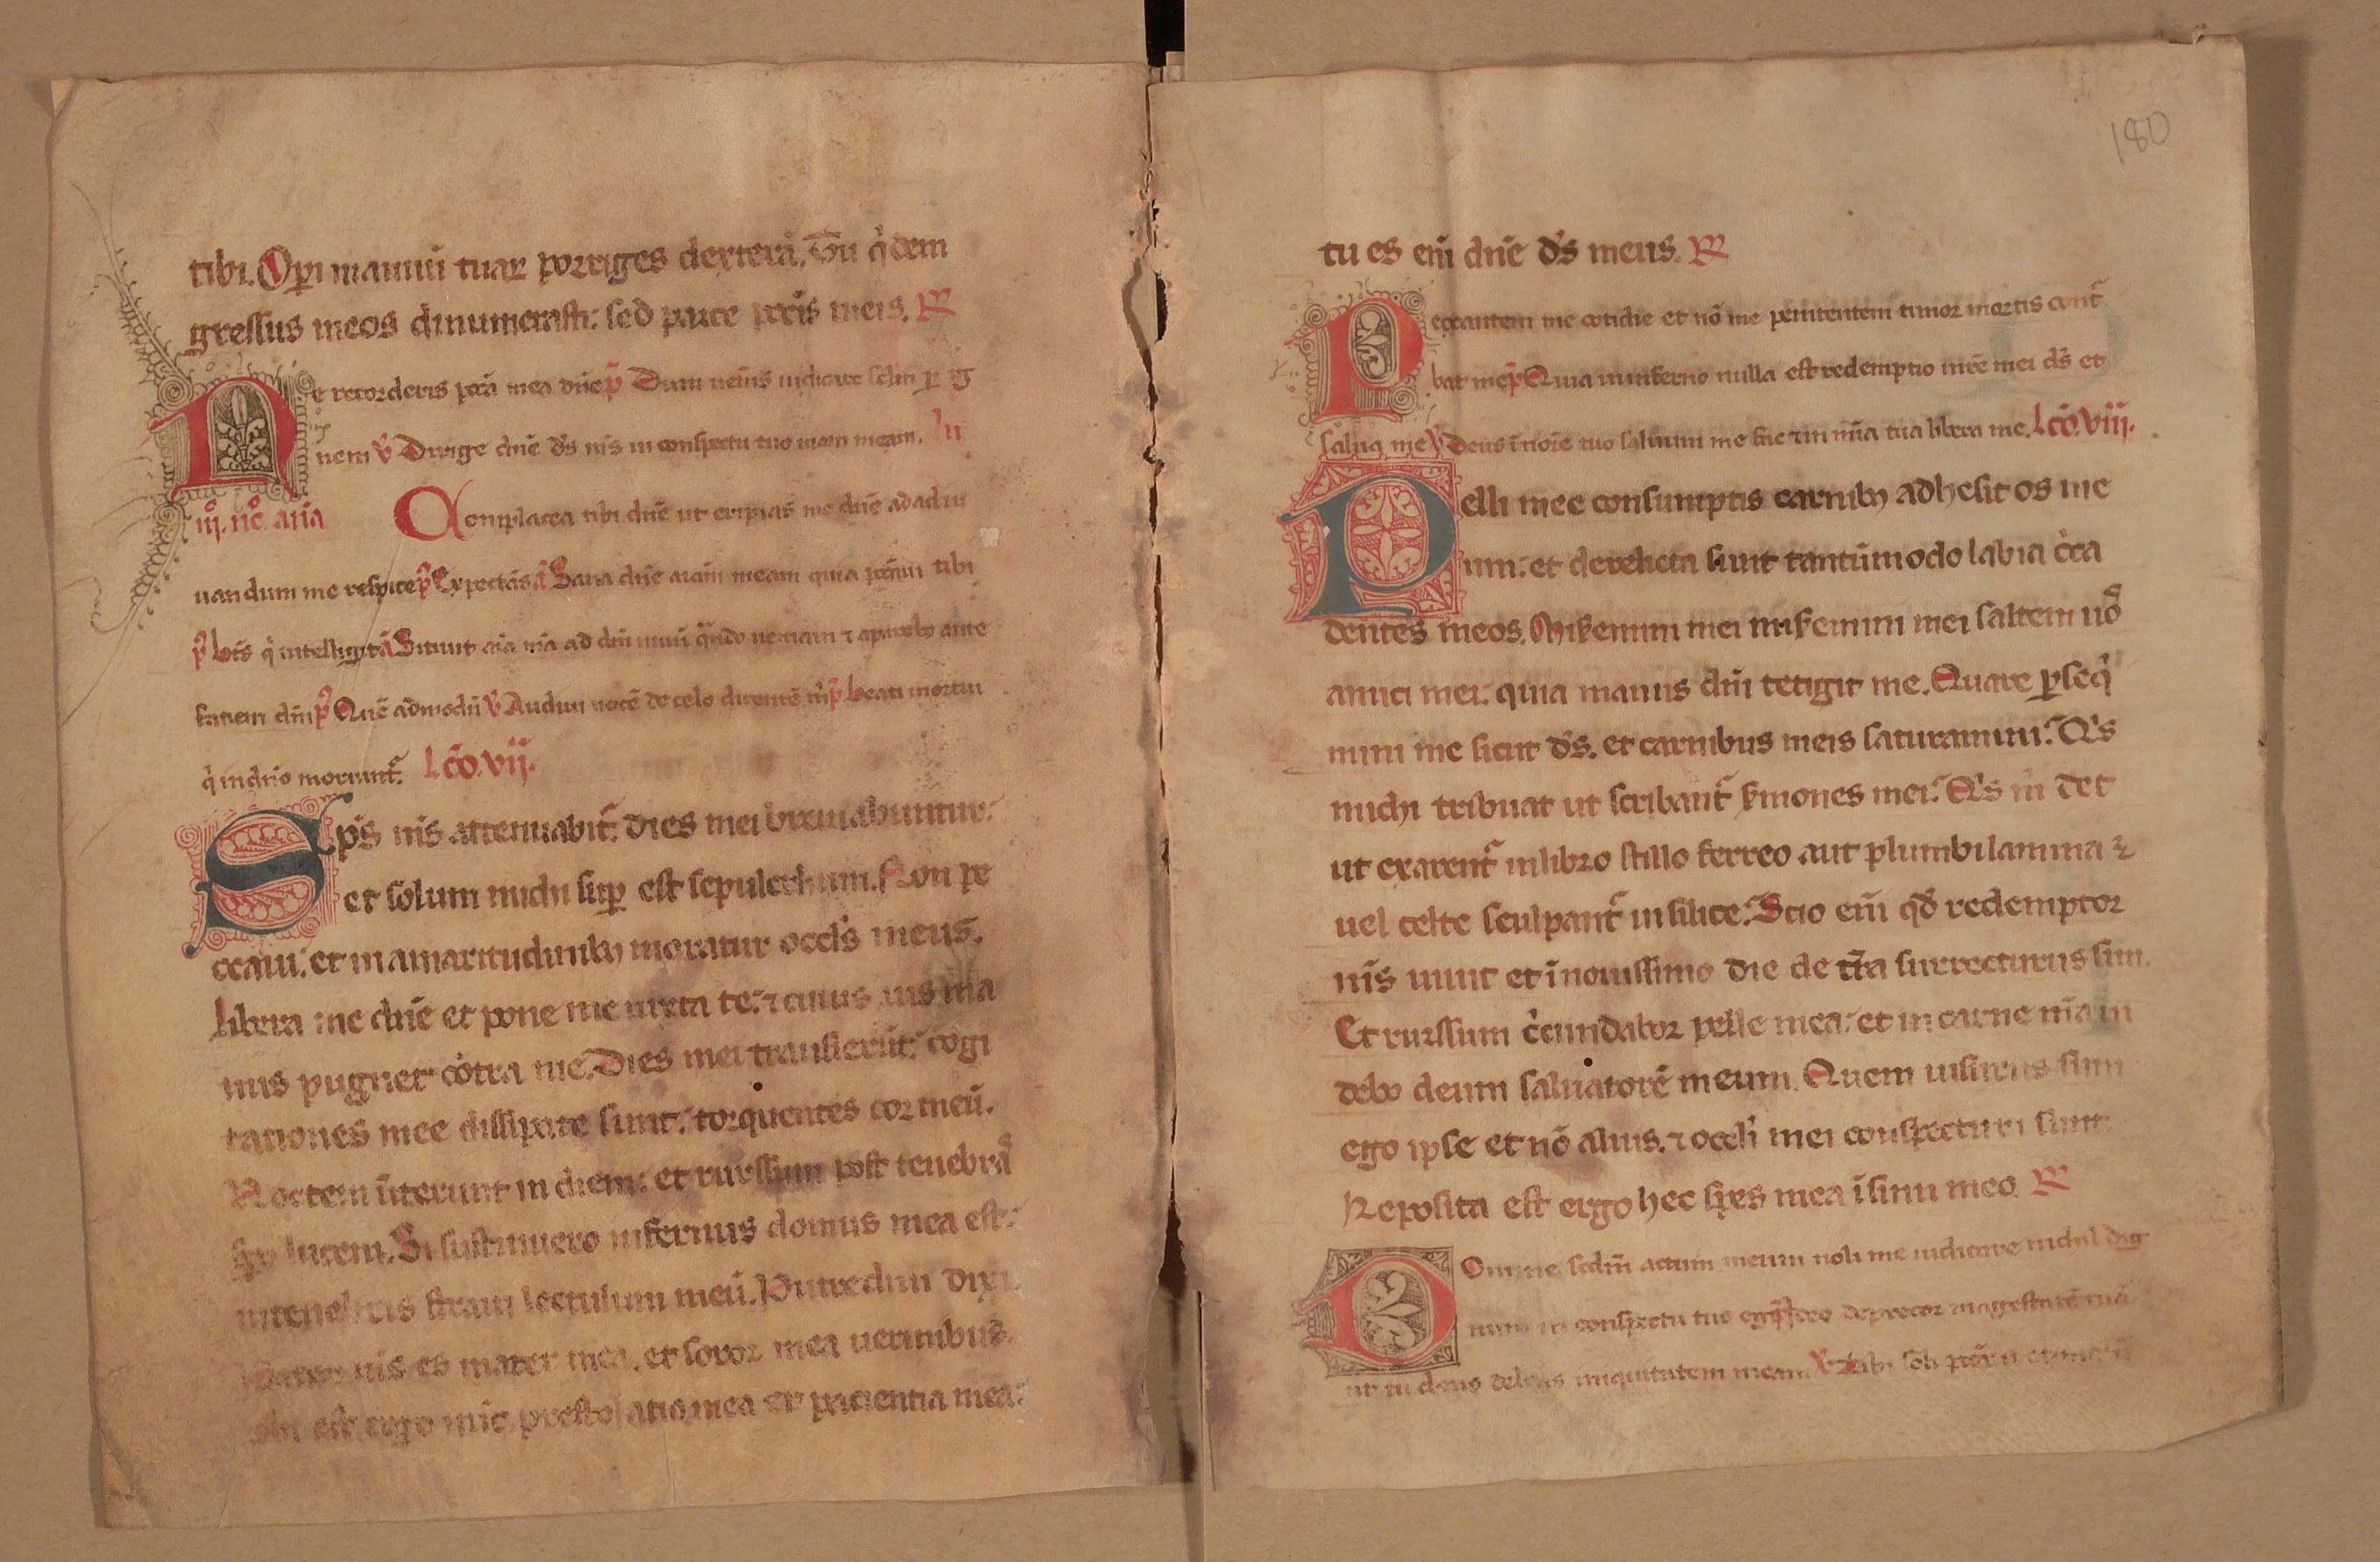 tibi. Opi manuū tuaꝝ porriges dexterā. Tu q̇dem
gressus meos dinumerasti: sed parce pccīs meis. R
Ne recorderis pccā mea dñe p̄ Dum uen̄is iudicare sclm p ig
nem v̄ Dirige dñe dˢs m̄s in conspectu tuo uiam meam. In
iij. nō. aña Complacea tibi dñe ut eripias me dñe ad adiu
uandum me respice p̄ Expectās ā Sana dñe aiam meam quia pccāui tibi
p̄ btˢs q̇ intelligit ā Sitiuit aīa mā ad dm̄ uiuū q̄ndo ueniam ⁊ aparebo ante
faciem dn̄i p̄ Quē admodū v̄ Audiui uocē de celo dicentē m̄ p̄ beati mortui
q̇ in dn̄o moriunt᷑. Lcō. vij.
Sps m̄s attenuabit᷑: dies mei breuiabuntur:
et solum michi sup est sepulcrhum. Non pe
ccaui: et in amaritudinibꝫ moratur occls meus.
Libera me dñe et pone me iuxta te: ⁊ cuius uis ma
nus pugnet cōtra me. Dies mei transierūt: cogi
tationes mee dissipate sunt: torquentes cor meū.
Noctem ūterunt in diem: et rurssum post tenebras
spo lucem. Si sustinuero infernus domus mea est:
in tenebris straui lectulum meū. Putredini dixi
Pater m̄s es mater mea. et soror mea uermibus.
Ubi est ergo nūc prestolatio mea et pacientia mea:
180
tu es eni dñe dˢs meus. R
Peccantem me cotidie et nō me penitentem timor mortis cont᷑
bat me p̄ Quia in inferno nulla est redemptio mˢre mei dˢs et
salua me v̄ Deus ī noīe tuo saluum me fac ⁊ in uirtˢ tua libera me. Lcō. viij.
Pelli mee consumptis carnibꝫ adhesit os me
um: et derelicta sunt tantūmodo labia cˢca
dentes meos. Misˢemini mei misˢemini mei saltem uoˢ
amici mei: quia manus dn̄i tetigit me. Quare pseq̇
mini me sicut dˢs. et carnibus meis saturamini? Qˢs
michi tribuat ut scribant᷑ sˢmones mei? Qˢs m̄ det
ut exarent᷑ in libro stillo ferreo aut plumbi lamina ⁊
uel celte sculpant᷑ in silice? Scio eni qd redemptor
m̄s uiuit et ī nouissimo die de tˢra surrecturus sum.
Et rurssum cˢcundabor pelle mea: et in carne mˢa ui
debo deum saluatorē meum. Quem uisurus sum
ego ipse et nō alius. ⁊ occli mei conspecturi sunt:
Reposita est ergo hec spes mea ī sinu meo R
Domine scdm̄ actum meum noli me iudicare nichil dig
num in conspectu tuo egi p̄ Ideo deprecor magestatē tuā
ut tu deus deleas iniquitatem meam v̄ Tibi soli pccāui